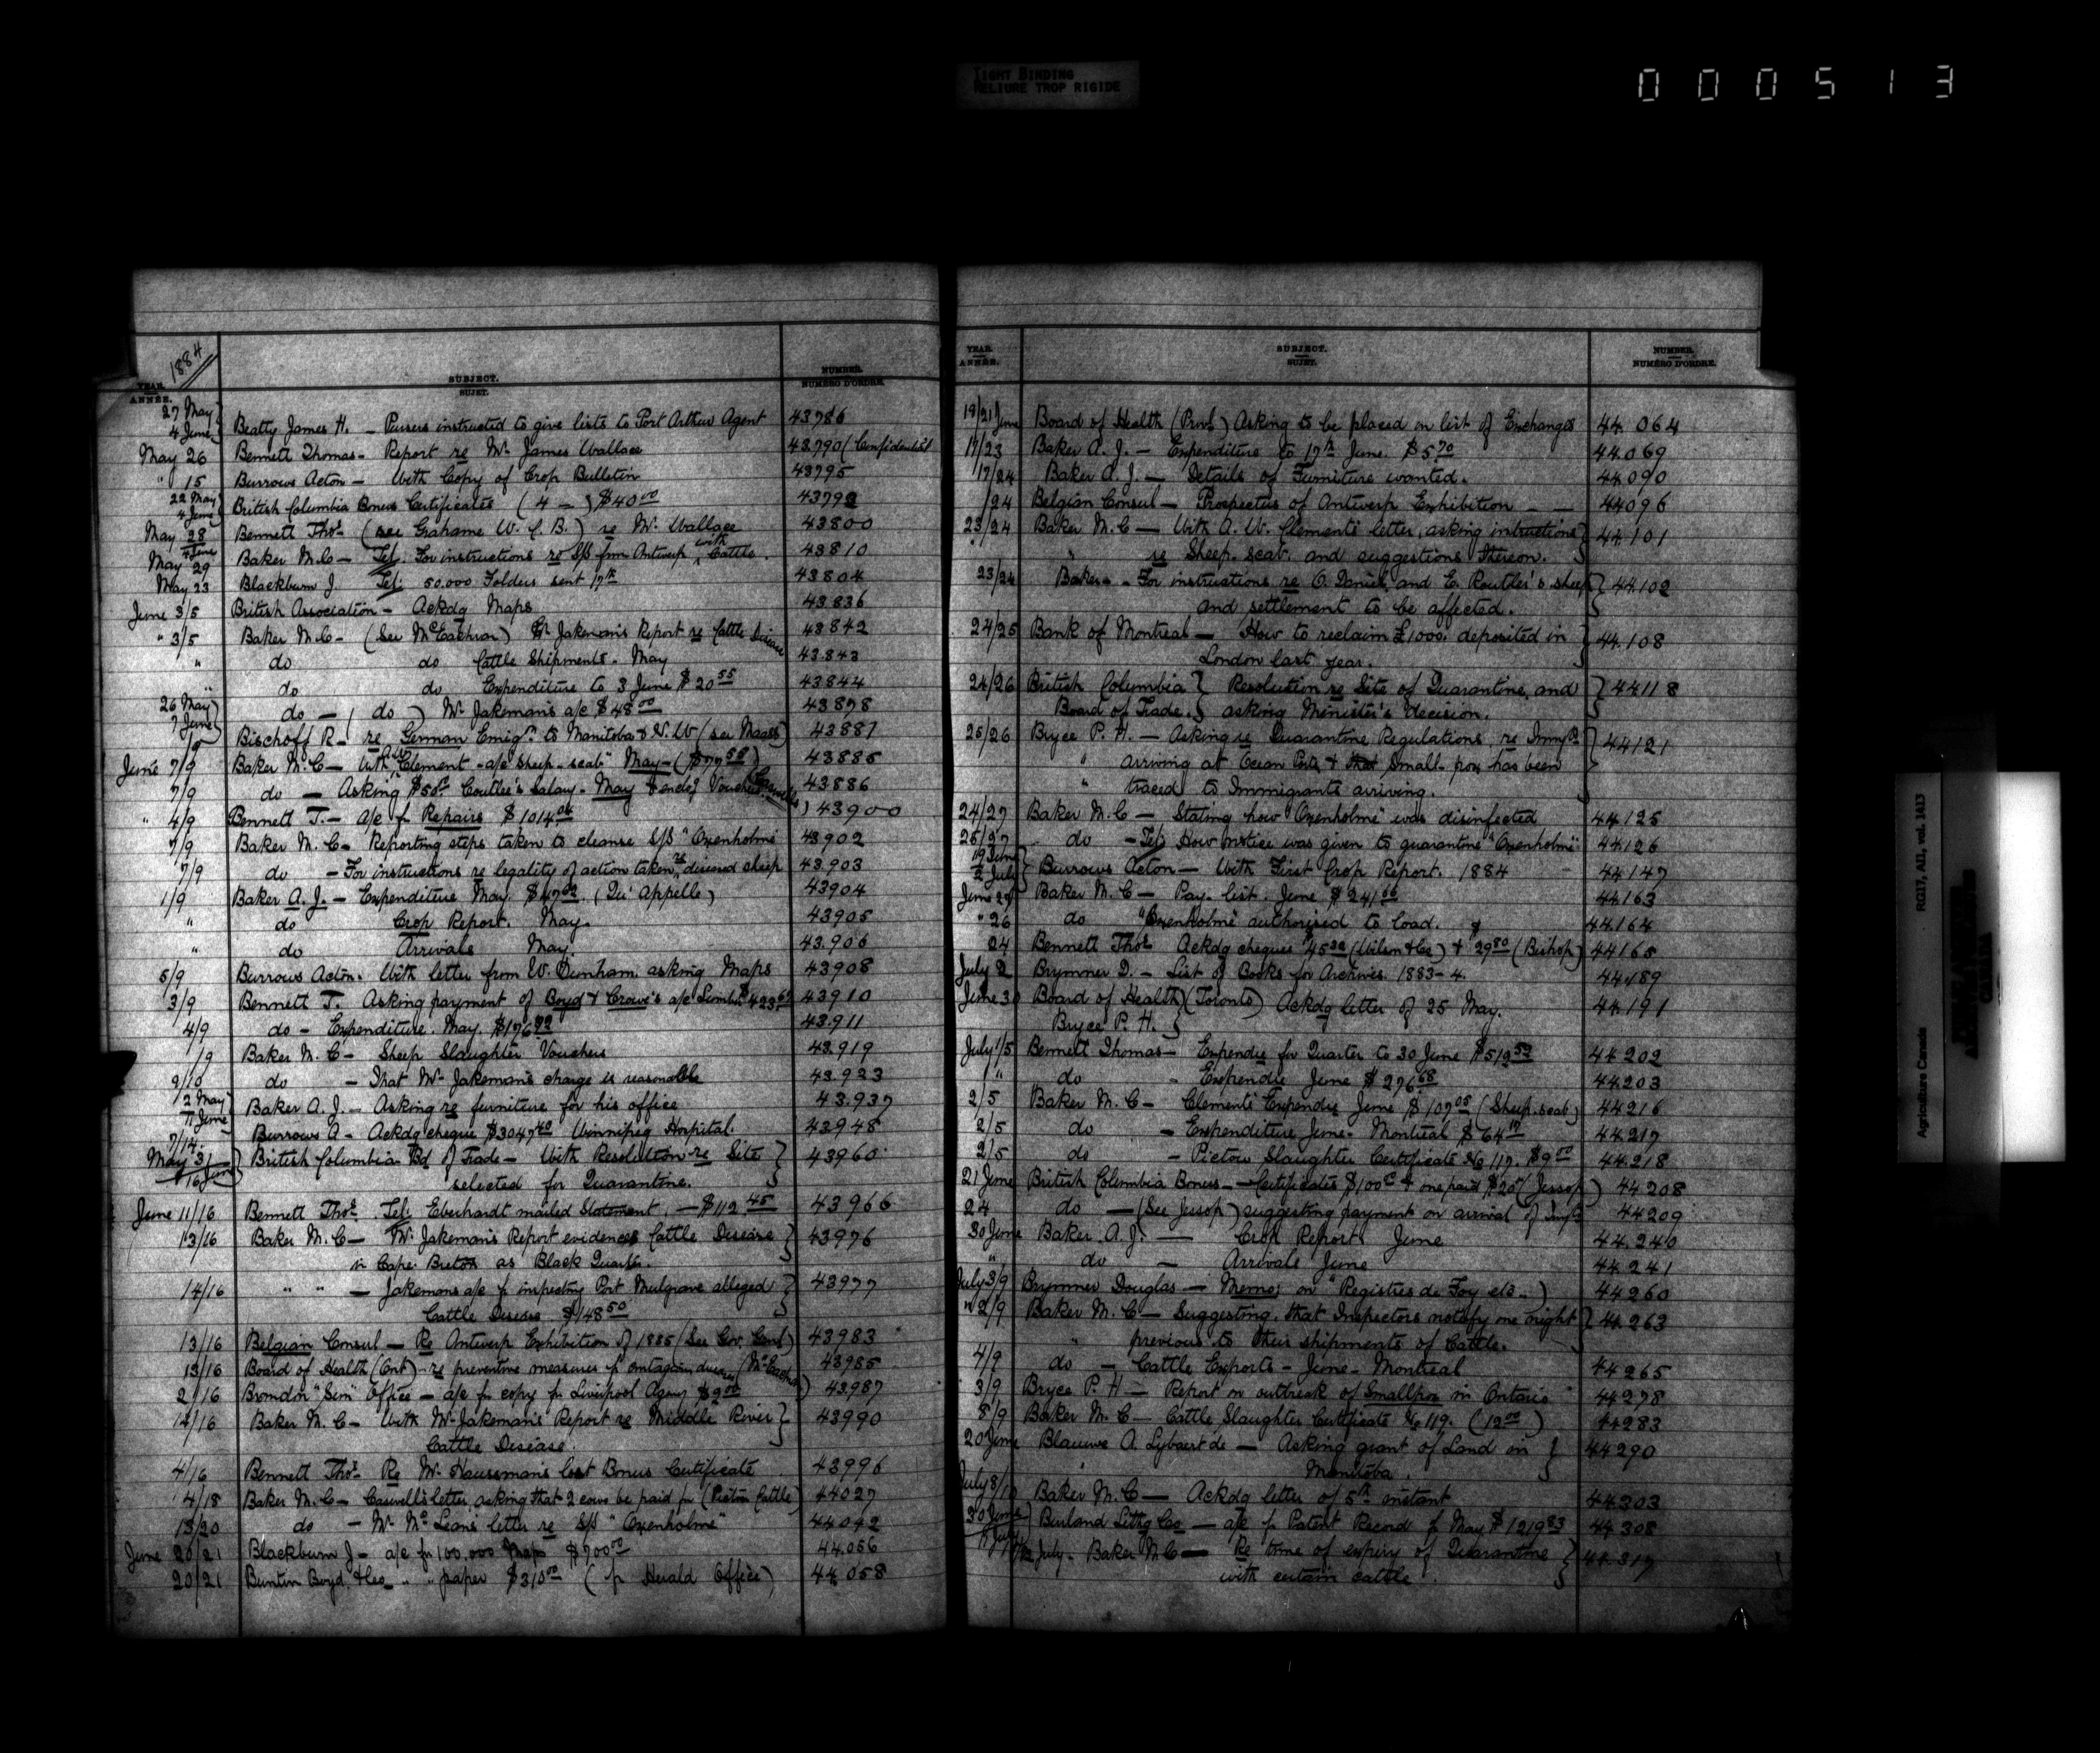 TIGHT BINDING
RELIURE TROP RIGIDE
000513
1884
YEAR. ANNÉE. SUBJECT. SUJET. NUMBER. NUMÉRO D'ORDRE.
27 May 4 June Beatty James H. - Pursers instructed to give lists to Port Arthur Agent 43786
May 26 Bennett Thomas - Report re Mr. James Wallace 43790 (Confidential
" 15 Burrows Acton - With Copy of Crop Bulletin 43795
22 May 4 June British Columbia Bonus Certificates (4 -) $40.00 43792
May 28 Bennett Thos. (see Grahame W. C. B.) re Mr. Wallace 43800
4 June May 29 Baker M.C - Tel. For instructions re S/S from Antwerp with Cattle. 43810
May 23 Blackburn J. Tel: 50.000 Folders sent 17th 43804
June 3/5 British Association - Ackdg Maps 43836
" 3/5 Baker M.C - (See McEachran) Mr Jakeman's Report re Cattle Disease 43842
" do do Cattle Shipments - May 43.843
" do do Expenditure to 3 June $20 55 43844
26 May 7 June do - (do) Mr. Jakeman's a/c $48 00 43878
Bischoff R - re German Emigrn. to Manitoba & N.W (see Maass) 43881
June 7/9 Baker M.C - With A W Clement - a/c Sheep-scab" May - ($77 58) 43885
7/9 do - Asking $50 Coutlee's Salary - May & enclg Vouchers 43886
" 4/9 Bennett T. - a/c for Repairs $1014 43900
7/9 Baker M. C - Reporting steps taken to cleanse S/S "Oxenholme 43902
7/9 do - For instructions re legality of action taken re diseased sheep 43.903
1/9 Baker A. J. - Expenditure May. $47 (Qu'Appelle) 43904
" do Crop Report. May. 43905
" do Arrivals May 43.906
5/9 Burrows Acton. With letter from W. Dunham, asking Maps 43908
3/9 Bennett T. Asking payment of Boyd & Crowe's a/c Lumber $423 43910
4/9 do - Expenditure. May. $176 43.911
/9 Baker M. C - Sheep Slaughter Vouchers 43.919
9/10 do - That Mr. Jakeman's charge is reasonable 43.923
12 May 11 June Baker A. J. - Asking re furniture for his office 43.937
7/14 Burrows A - Ackdg cheque $3047 40 Winnipeg Hospital. 43948
May 31 16 June British Columbia Bd of Trade - With Resolution re Site 43960
selected for Quarantine.
June 11/16 Bennett Thos. Tel. Eberhardt mailed Statement. - $112 45 43966
13/16 Baker M.C - Mr. Jakeman's Report evidences Cattle Disease 43976
in Cape Breton as Black Quarter.
14/16 " " - Jakemans a/c for inspecting Port Mulgrave alleged 43977
Cattle Disease $148 50
13/16 Belgian Consul - Re Antwerp Exhibition of 1885 (See Gov. Genl) 43983
13/16 Board of Health (Ont) - re preventive measures 43985
2/16 "Sun" Office - a/c for copy for Liverpool Agency $2 00 43.987
14/16 Baker M. C - With Mr Jakeman's Report re Middle River 43990
Cattle Disease.
4/16 Bennett Thos. Re Mr. Haussman's lost Bonus Certificate 43996
14/18 Baker M. C - Caswell's letter, asking that 2 cows be paid for (Pictou Cattle) 44027
13/20 do - Mr. McLean's letter re S/S "Oxenholme" 44042
June 20/21 Blackburn J - a/c for 100,000 Maps $700 00 44.056
20/21 Buntin Boyd, & Co " " paper $310 00 (for Herald Office) 44.058
YEAR. ANNÉE. SUBJECT. SUJET. NUMBER. NUMÉRO D'ORDRE.
19/21 June Board of Health (Prov.) Asking to be placed on list of Exchanges 44.064
17/23 Baker A. J. - Expenditure to 17th June. $5 70 44.069
17/24 Baker A. J. - Details of Furniture wanted. 44.090
/24 Belgian Consul - Prospectus of Antwerp Exhibition - - 44096
23/24 Baker M.C - With A. W. Clement's letter, asking instructions 44.101
" re Sheep-scab. and suggestions thereon.
23/24 Baker - For instructions re O. Daniel, and E. Routler's sheep 44102
and settlement to be affected.
24/25 Bank of Montreal - How to reclaim £1000. deposited in 44.108
London last year.
24/26 British Columbia Resolution re Site of Quarantine, and 44118
Board of Trade. asking Minister's decision.
25/26 Bryce P. H. - Asking re Quarantine Regulations, re Immgts 44121
" arriving at Ocean Ports, & that Small-pox has been
" traced to Immigrants arriving.
24/27 Baker M. C - Stating how "Oxenholme" was disinfected 44125
25/27 do - Tel. How notice was given to quarantine "Oxenholme" 44.126
19 June 2 July Burrows Acton - With First Crop Report. 1884 44147
June 29 Baker M. C - Pay-list. June $241 66 44.163
" 26 do "Oxenholme" authorized to load. 44.164
24 Bennett Thos. Ackdg cheques 45 (Wilson & Co) & 29 80 (Bishop) 44165
July 2 Brymner D. - List of Books for Archives. 1883-4. 44.189
June 30 Board of Health (Toronto) Ackdg letter of 25 May. 44.191
Bryce P. H.
July 1/5 Bennett Thomas - Expendre for Quarter to 30 June $512 50 44.202
" do - Expendre June $276 68 44.203
2/5 Baker M. C - Clement's Expendre June $107 05 (Sheep-scab) 44216
2/5 do - Expenditure June - Montreal $64 44.217
2/5 do - Pictou Slaughter Certificate No 117. $9 00 44.218
21 June British Columbia Bonus - Certificates $100 & one paid $20 (Jessop) 44208
24 do - (See Jessop) suggesting payment on arrival of Imgts 44209
30 June Baker A. J. - Crop Report. June 44.240
" do - Arrivals June 44241
July 3/9 Brymner Douglas - Memo: on "Registres de Foy etc.) 44260
" 2/9 Baker M. C - Suggesting, that Inspectors notify one night 44.263
" previous to their shipments of Cattle.
4/9 do - Cattle Exports - June - Montreal 44265
3/9 Bryce P. H - Report on outbreak of Smallpox in Ontario 44278
8/9 Baker M. C - Cattle Slaughter Certificate No 119. (12 00) 44283
20 June Blauwe A. Lybaert de - Asking grant of Land in 44290
Manitoba.
July 8/10 Baker M. C - Ackdg letter of 5th instant 44303
30 June July Burland Lithg Co - a/c for Patent Record for May $1219 83 44308
July - Baker M C - Re time of expiry of Quarantine 44.317
with certain cattle
Agriculture Canada RG17, AII, vol. 1413